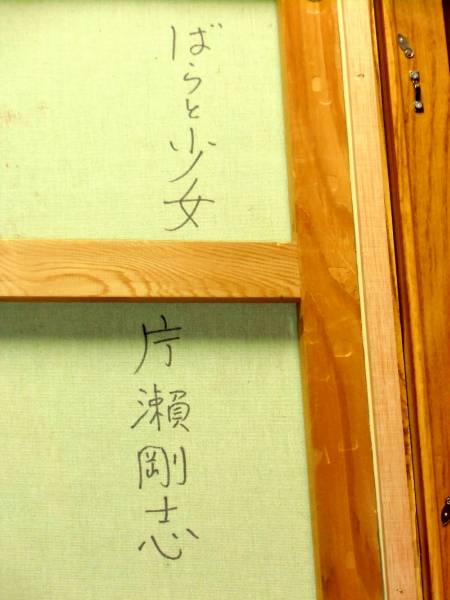 ばらと少女
片瀬剛志